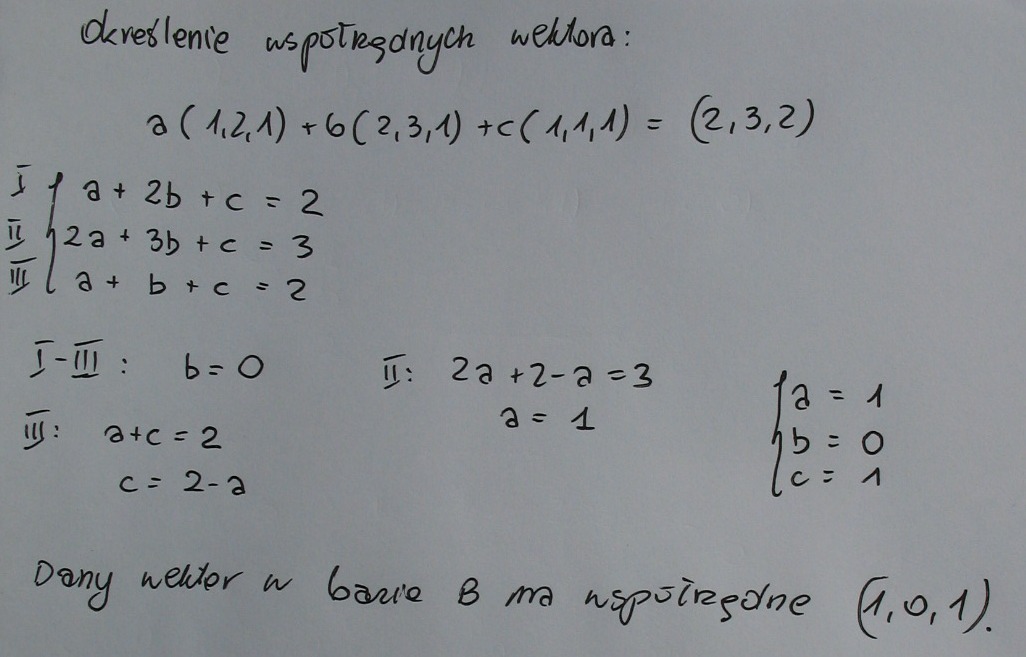 Określenie współrzędnych wektora:
a(1,2,1) + b(2,3,1) + c(1,1,1) = (2,3,2)
I a + 2b + c = 2
II 2a + 3b + c = 3
III a + b + c = 2
I-III: b=0
III: a+c=2
c= 2-a
II: 2a+2-a=3
a= 1
a = 1
b = 0
c = 1
Dany wektor w bazie B ma współrzędne (1,0,1).